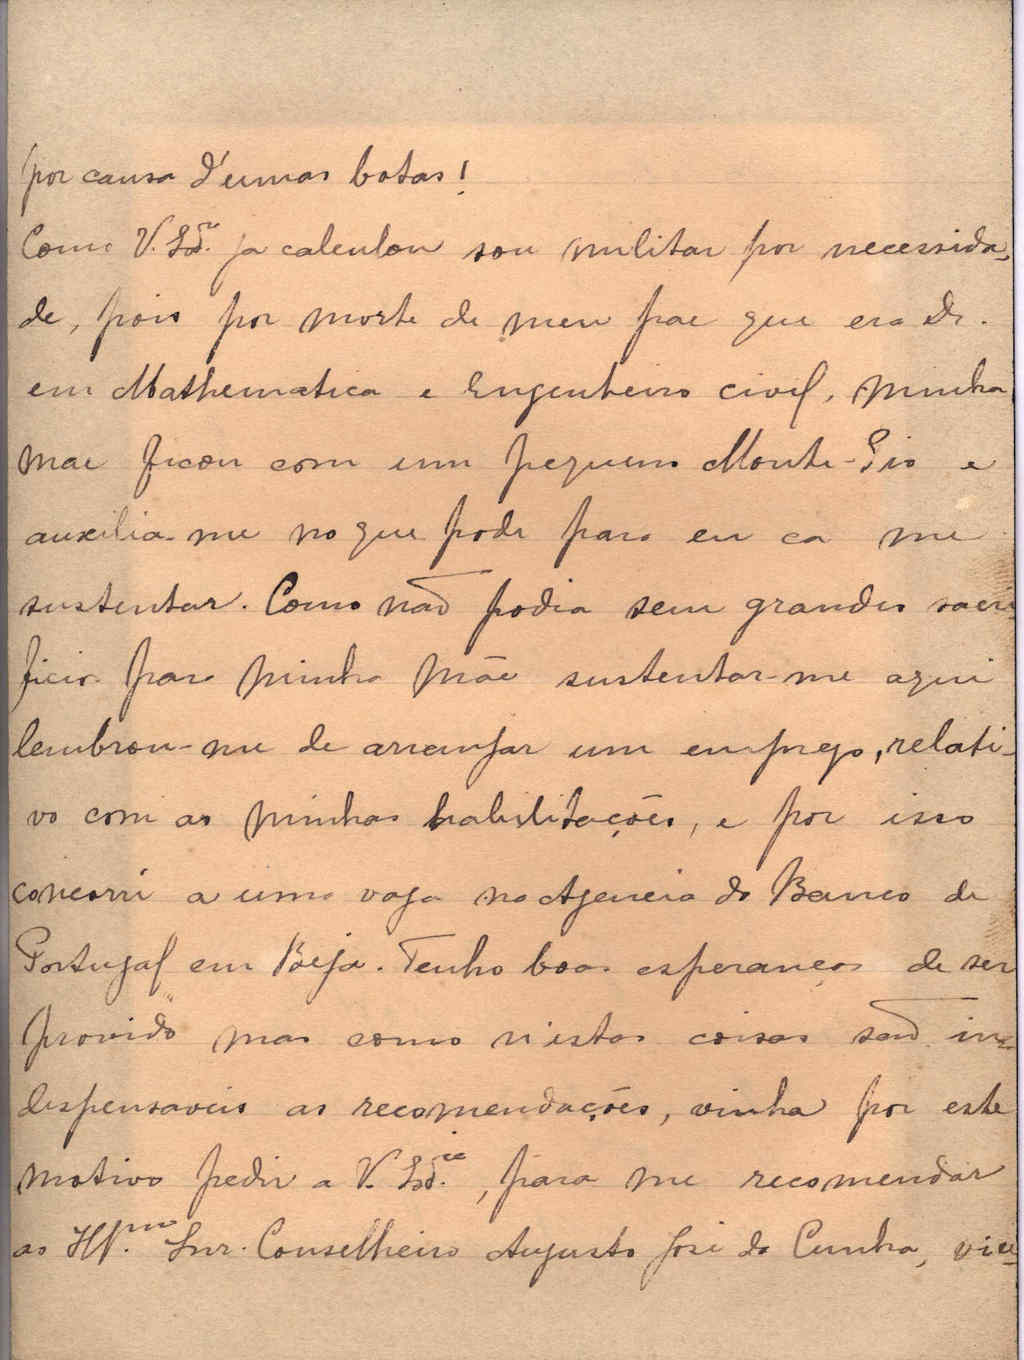 por causa d'umas botas!
Como V. Sd.ª ja calculou sou militar por necessida-
de, pois por morte de meu pae que era Dr.
em Mathematica e Engenheiro civil, minha
mae ficou com um pequeno Monte-Pio e
auxilia-me no que pode para eu ca me
sustentar. Como não podia sem grandes sacri
ficio para minha mãe sustentar-me aqui
lembrou-me de arranjar um emprego, relati-
vo com as minhas habilitações, e por isso
concorri a uma vaga na Agencia do Banco de
Portugal em Beja. Tenho boas esperanças de ser
provido mas como n'estas coisas são in-
dispensaveis as recomendações, vinha por este
motivo pedir a V. Sd.cia, para me recomendar
ao Ill.mo Snr. Conselheiro Augusto José da Cunha, vice-